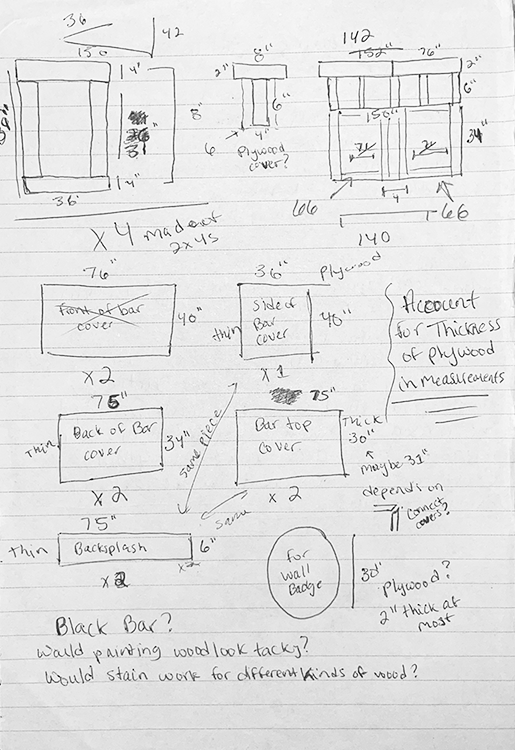 36
42
150
4"
8"
31
4"
36"
8"
2"
6"
4"
6
Plywood
cover?
142
76"
2"
6"
150"
34"
66
4
66
140
x 4 made out
2x4s
76"
Front of bar
cover
40"
x 2
36"
Plywood
thin
Side of
Bar
cover
40"
x 1
Account
for Thickness
of Plywood
in measurements
75"
Thin
Back of Bar
cover
34"
x 2
same piece
75"
Bar top
cover
Thick
30"
maybe 31"
depends on
connect
covers?
x 2
same
75"
thin
Backsplash
6"
For
Wall
Badge
30"
Plywood?
2" thick at
most
Black Bar?
Would painting wood look tacky?
Would stain work for different kinds of wood?